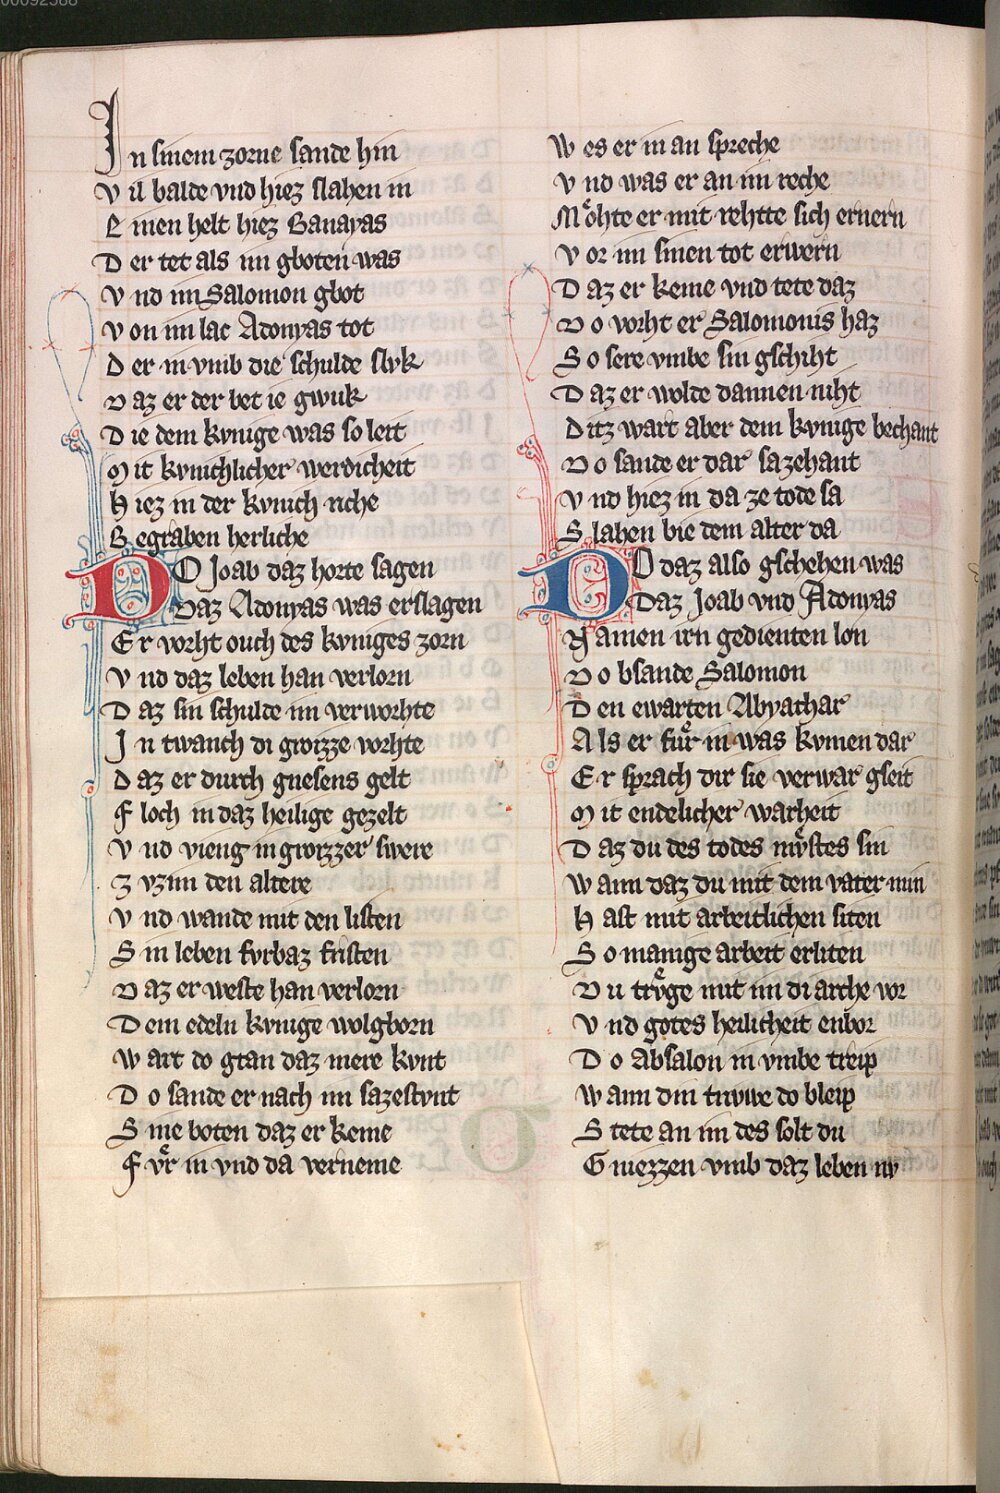 00092588
In sinem zorne sande hin
Vil balde vnd hiez slahen in
Einen helt hiez Banayas
Der tet als im gboten was
Vnd im Salomon gbot
Von im lac Adonyas tot
Der in vmb die schulde slvk
Daz er der bet ie gwuk
Die dem kvnige was so leit
Mit kvnichlicher werdicheit
Hiez in der kvnich riche
Begraben herliche
DO Joab daz horte sagen
Daz Adonyas was erslagen
Er vorht ouch des kvniges zorn
Vnd daz leben han verlorn
Daz sin schulde im verworhte
In twanch di grozze vorhte
Daz er durch gnesens gelt
Floch in daz heilige gezelt
Vnd vieng in grozzer swere
Zvzim den altere
Vnd wande mit den listen
Sin leben fvrbaz fristen
Daz er weste han verlorn
Dem edeln kvnige wolgborn
Wart do gtan daz mere kvnt
Do sande er nach im sazestvnt
Sine boten daz er keme
Fvͤr in vnd da verneme
Wes er in an spreche
Vnd was er an im reche
Moͤhte er mit rehtte sich ernern
Vor im sinen tot erwern
Daz er keme vnd tete daz
Do vorht er Salomonis haz
So sere vmbe sin gschiht
Daz er wolde dannen niht
Ditz wart aber dem kvnige bechant
Do sande er dar sazehant
Vnd hiez in da ze tode sa
Slahen bie dem alter da
DO daz also gschehen was
Daz Joab vnd Adonyas
Namen irn gedienten lon
Do bsande Salomon
Den ewarten Abyathar
Als er fuͤr in was kvmen dar
Er sprach dir sie verwar gseit
Mit endelicher warheit
Daz du des todes mvͤstes sin
Wann daz du mit dem vater min
Hast mit arbeitlichen siten
So manige arbeit erliten
Du trvͤge mit im di arche vor
Vnd gotes heilicheit enbor
Do Absalon in vmbe treip
Wann din triwe do bleip
Stete an im des solt du
Gniezzen vmb daz leben nv